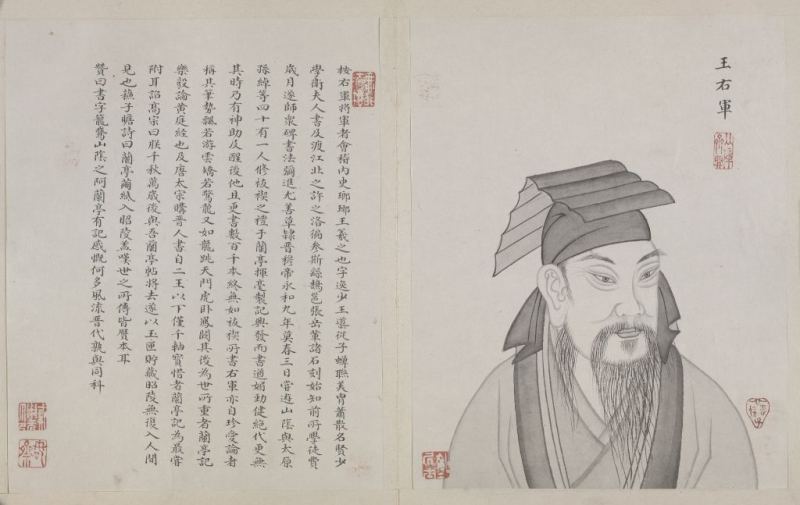 王右軍
按右軍將軍者會稽內史瑯琊王羲之也字逸少王曠從子蟬聯美冑蕭散名賢少
學衛夫人書及渡江北之許之洛徧參斯繇鵠邕張岳華諸石刻始知前所學徒費
歲月遂師衆碑書法彌進尤善草隸晉穆帝永和九年莫春三日嘗遊山陰與太原
孫綽等四十有一人修祓禊之禮于蘭亭揮毫製記興發而書遒媚勁健絕代更無
其時乃有神助及醒後他日更書數百千本終無如祓禊所書右軍亦自珍愛論者
稱其筆勢飄若游雲矯若驚龍又如龍跳天門虎卧鳳閣其後為世所重者蘭亭記
樂毅論黃庭經也及唐太宗購晉人書自二王以下僅千軸寶惜者蘭亭記為最嘗
附耳詔高宗曰朕千秋萬歲後與吾蘭亭帖將去遂以玉匣貯藏昭陵無復入人間
見也蘇子瞻詩曰蘭亭繭紙入昭陵葢嘆世之所傳皆贋本耳
贊曰書字籠鵞山陰之阿蘭亭有記感慨何多風流晉代孰與同科